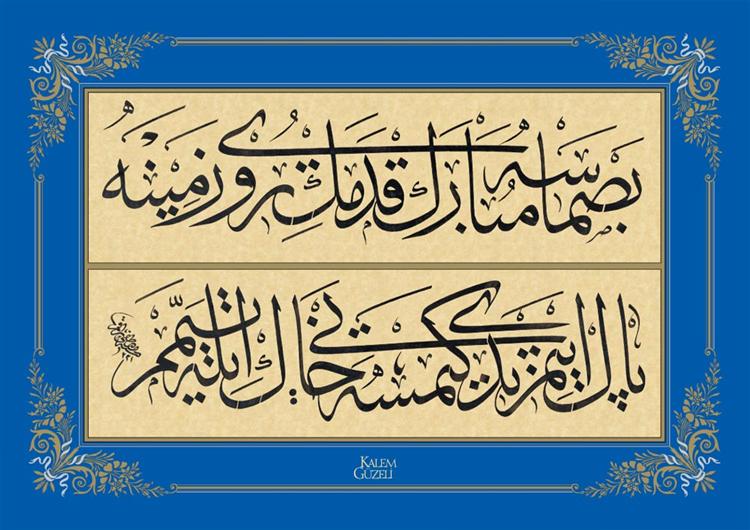 بصماسه مبارك قدمك روى زمينه
پاك ايتمز ايدى كيمسه يى خاك ايله تيمم
KALEM GÜZELİ